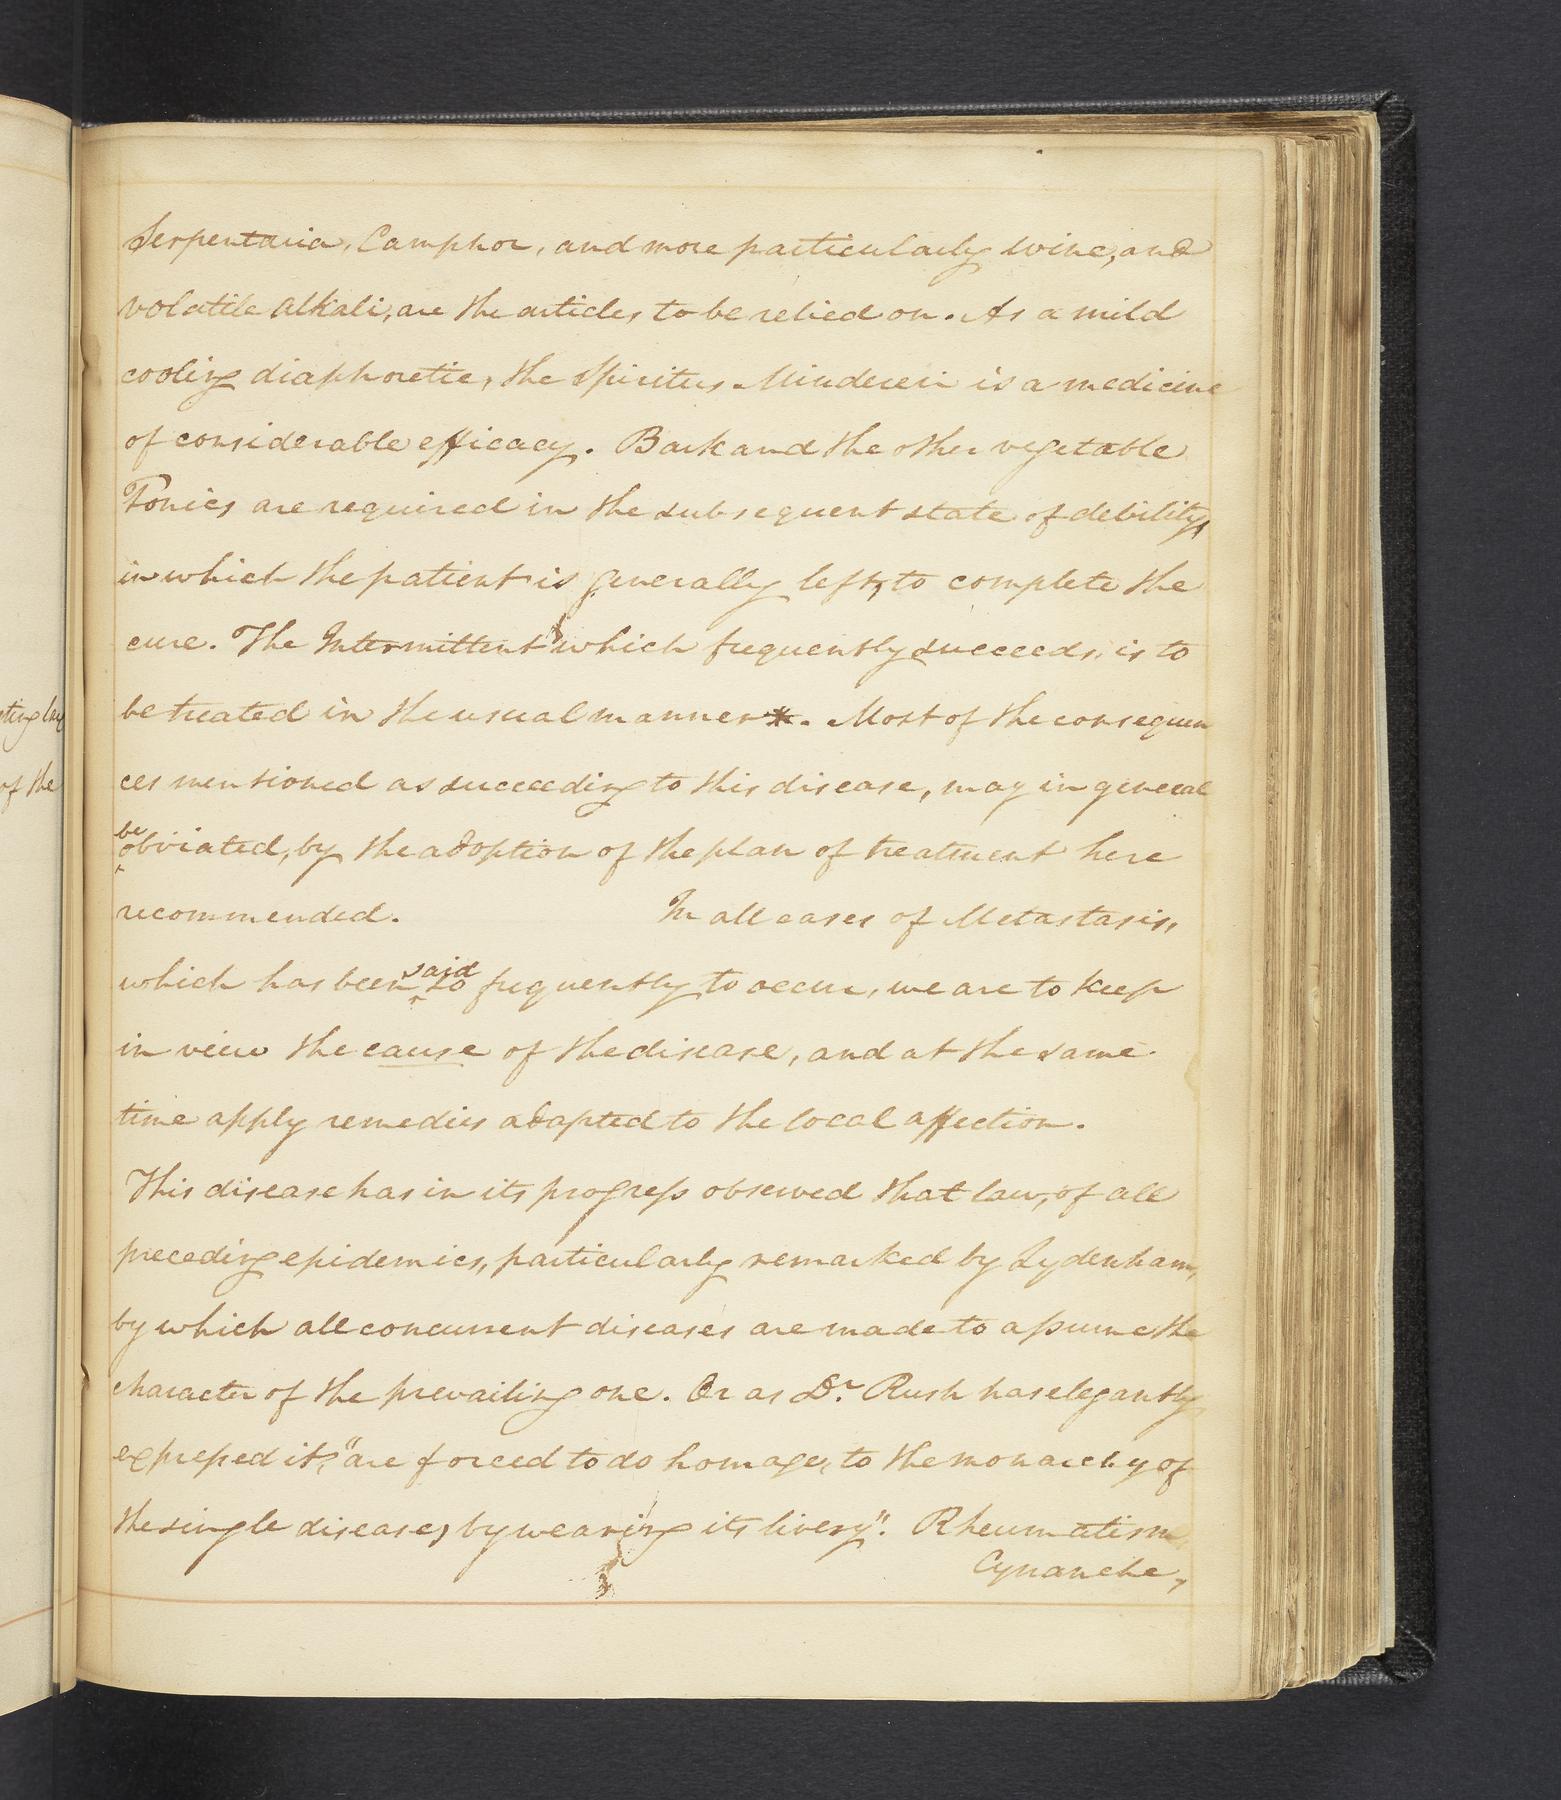 Serpentaria, Camphor, and more particularly wine, and
volatile alkali, are the articles to be relied on. As a mild
cooling diaphoretic, the Spiritus Mindereri is a medicine
of considerable efficacy. Bark and the other vegetable
Tonics are required in the subsequent state of debility,
in which the patient is generally left, to complete the
cure. The Intermittent which frequently succeeds, is to
be treated in the usual manner*. Most of the consequen
ces mentioned as succeeding to this disease, may in general
be
obviated, by the adoption of the plan of treatment here
recommended. In all cases of Metastasis,
said
which has been so frequently to occur, we are to keep
in veiw the cause of the disease, and at the same
time apply remedies adapted to the local affection.
This disease has in its progress observed that law, of all
preceding epidemics, particularly remarked by Sydenham,
by which all concurrent diseases are made to assume the
character of the prevailing one. Or as Dr. Rush has elegantly
expressed it, "are forced to do homage, to the monarchy of
the single disease, by wearing its livery". Rheumatism,
Cynanche,
sting lay
of the